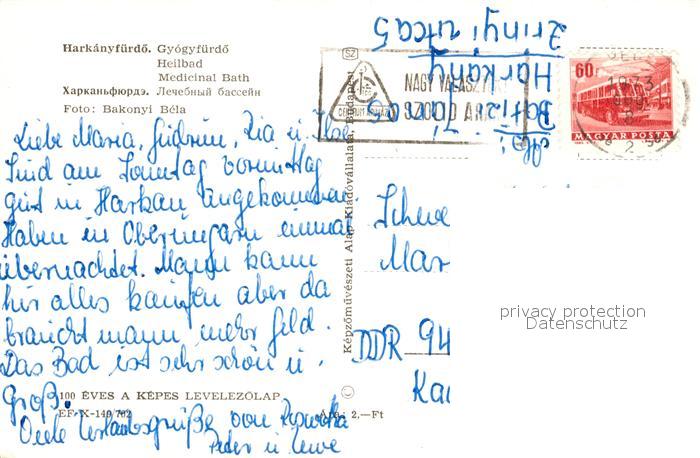 Harkányfürdő. Gyógyfürdő
Heilbad
Medicinal Bath
Харканьфюрдэ. Лечебный бассейн
Foto: Bakonyi Béla
Liebe Maria, Gudrun, Pia u.
Sind am Sonntag vormittag
gut in Harkan angekommen.
Haben in Oberungarn einmal
übernachtet. Mann kann
hir alles kaufen aber da
braucht mann mehr Geld.
Das Bad ist sehr schön u.
Groß.
Viele Urlaubsgrüße von
Peter u. Uwe
100 ÉVES A KÉPES LEVELEZŐLAP
EF-X-140/702
Ára: 2,—Ft
Képzőművészeti Alap Kiadóvállalata, Budapest
SZ
NAGY VÁLASZTÉK
SZOLID ÁRAK
CENTRUM ÁRUHÁZAK
60f
MAGYAR POSTA
1973
Harkány
Zrinyi utca 5
Schwe
Mar
DDR 94
privacy protection
Datenschutz